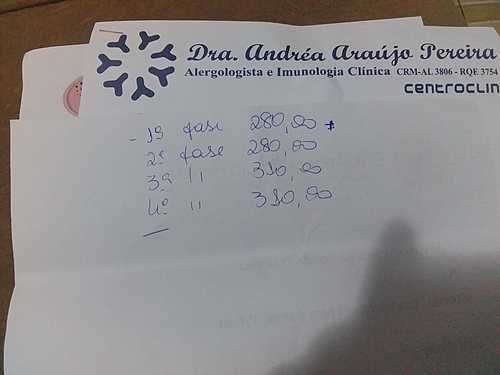 Dra. Andréa Araújo Pereira
Alergologista e Imunologia Clínica CRM-AL 3806 - RQE 3754
CENTROCLIN
- 1ª fase 280,00 *
2ª fase 280,00
3ª " 310,00
4ª " 310,00